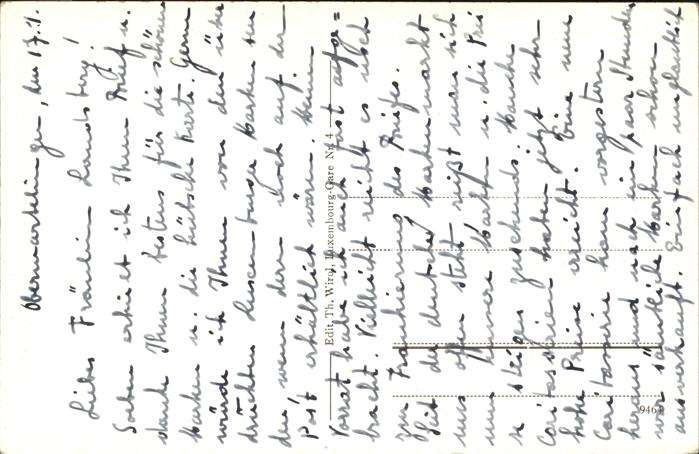 Obermartelingen, den 17.1.
Liebes Fräulein Landsberg!
Soeben erhielt ich Ihren Brief u.
danke Ihnen bestens für die schönen
Marken u. die hübsche Karte. Gern
würde ich Ihnen von den über
druckten Luxemburger Marken sen
den, wenn denn noch auf der
Post erhältlich wären. Mein
Vorrat habe ich auch fast aufge=
bracht. Vielleicht reicht es noch
zur Frankierung des Briefes.
Seit der deutsche Markenmarkt
uns offen steht reißt man sich
um Luxem. Marken u. die Prei
se steigen zusehends. Manche
Caritasserien haben jetzt sehr
hohe Preise erreicht. Eine neue
Caritasserie kam vorgestern
heraus und nach ein paar Stunden
war sämtliche Marken schon
ausverkauft. Einfach unglaublich
Edit. Th. Wirol, Luxembourg-Gare Nr. 4
9464